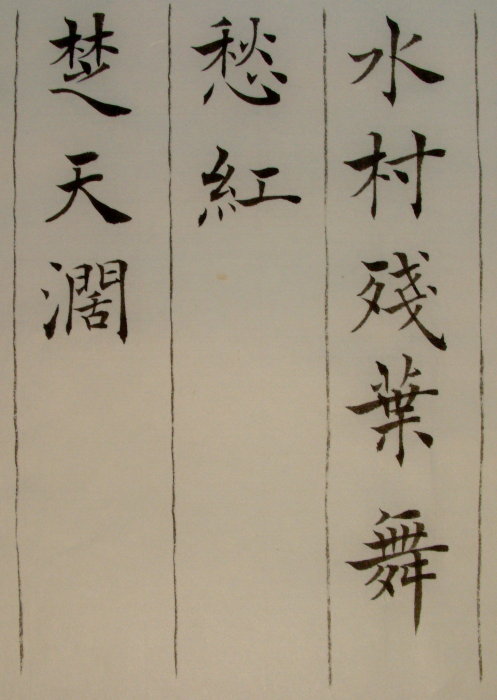 水村殘葉舞
愁紅
楚天濶